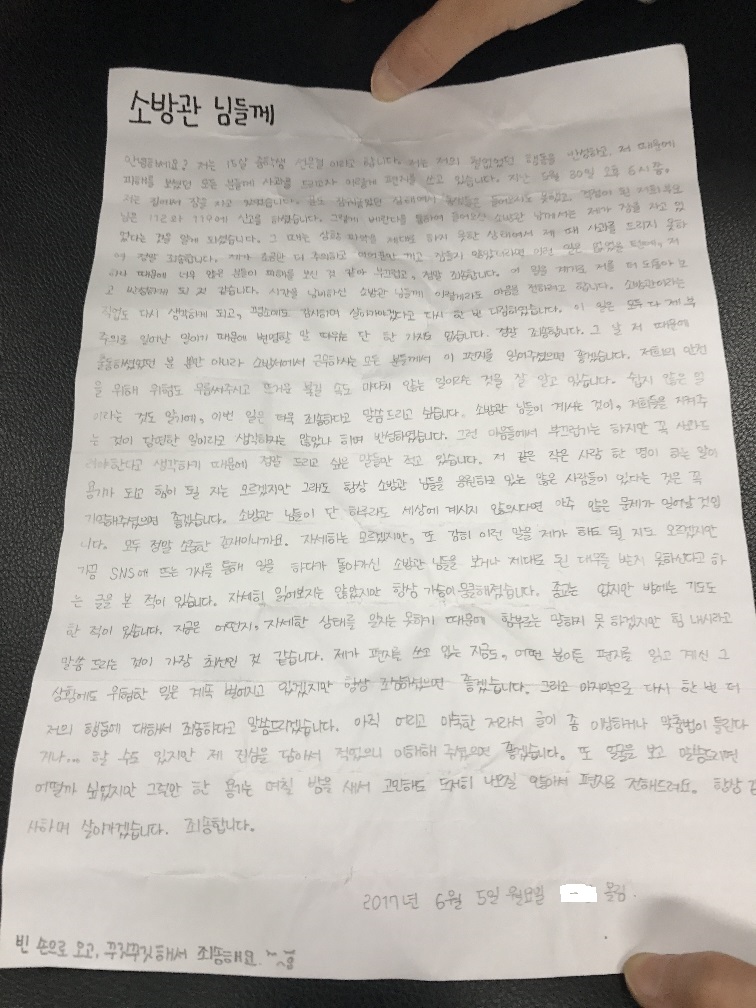 소방관 님들께
안녕하세요? 저는 15살 중학생 이라고 합니다. 저는 저의 행동을 반성하고, 저 때문에
피해를 보셨던 모든 분들께 사과를 드리고자 이렇게 편지를 쓰고 있습니다. 지난 5월 30일 오후 6시쯤,
저는 집에서 잠을 자고 있었습니다. 문도 잠겨있었던 상태에서 가족들은 들어오지 못했고, 걱정이 된 저희 부모
님은 112와 119에 신고를 하셨습니다. 그렇게 베란다를 통하여 들어오신 소방관 님께서는 제가 잠을 자고 있
었다는 것을 알게 되셨습니다. 그 때는 상황 파악을 제대로 하지 못한 상태에서 제 때 사과를 드리지 못하
여 정말 죄송합니다. 제가 조금만 더 주의하고 잠들지 않았더라면 이런 일은 없었을 텐데, 저
하나 때문에 너무 많은 분들이 피해를 보신 것 같아 부끄럽고, 정말 죄송합니다. 이 일을 계기로 저를 더 돌아보
고 반성하게 된 것 같습니다. 시간을 낭비하신 소방관 님들께 이렇게라도 마음을 전하려고 합니다. 소방관이라는
직업도 다시 생각하게 되고, 평소에도 감사하며 살아야겠다고 다시 한 번 다짐하였습니다. 이 일은 모두 다 제 부
주의로 일어난 일이기 때문에 변명할 말 따위는 단 한 가지도 없습니다. 정말 죄송합니다. 그 날 저 때문에
출동하셨었던 분 뿐만 아니라 소방서에서 근무하시는 모든 분들께서 이 편지를 읽어주셨으면 좋겠습니다. 저희의 안전
을 위해 위험도 무릅써주시고 뜨거운 불길 속도 마다치 않는 일이라는 것을 잘 알고 있습니다. 쉽지 않은 일
이라는 것도 알기에, 이번 일은 더욱 죄송하다고 말씀드리고 싶습니다. 소방관 님들이 계시는 것이, 저희들을 지켜주
는 것이 당연한 일이라고 생각하지는 않았나 하며 반성하였습니다. 그런 마음들에서 부끄럽기는 하지만 꼭 사과드
려야한다고 생각하기 때문에 정말 드리고 싶은 말들만 적고 있습니다. 저 같은 작은 사람 한 명이 하는 말이
용기가 되고 힘이 될 지는 모르겠지만 그래도 항상 소방관 님들을 응원하고 있는 많은 사람들이 있다는 것은 꼭
기억해주셨으면 좋겠습니다. 소방관 님들이 단 하루라도 세상에 계시지 않으신다면 아주 많은 문제가 일어날 것입
니다. 모두 정말 소중한 존재이니까요. 자세히는 모르겠지만, 또 감히 이런 말을 제가 해도 될 지도 모르겠지만
가끔 SNS에 뜨는 기사를 통해 일을 하다가 돌아가신 소방관 님들을 보거나 제대로 된 대우를 받지 못하신다고 하
는 글을 본 적이 있습니다. 자세히 읽어보지는 않았지만 항상 가슴이 뭉클해졌습니다. 종교는 없지만 밤에는 기도도
한 적이 있습니다. 지금은 어떤지, 자세한 상태를 알지는 못하기 때문에 함부로는 말하지 못 하겠지만 힘 내시라고
말씀 드리는 것이 가장 최선인 것 같습니다. 제가 편지를 쓰고 있는 지금도, 어떤 분이든 편지를 읽고 계신 그
상황에도 위험한 일은 계속 벌어지고 있겠지만 항상 조심하셨으면 좋겠습니다. 그리고 마지막으로 다시 한 번 더
저의 행동에 대해서 죄송하다고 말씀드리겠습니다. 아직 어리고 미숙한 저라서 글이 좀 이상하거나 맞춤법이 틀린다
거나... 할 수도 있지만 제 진심을 담아서 적었으니 이해해 주셨으면 좋겠습니다. 또 얼굴을 보고 말씀드리면
어떨까 싶었지만 그럴만 한 용기는 며칠 밤을 새서 고민해도 도저히 나오질 않아서 편지로 전해드려요. 항상 감
사하며 살아가겠습니다. 죄송합니다.
2017년 6월 5일 월요일 올림.
빈 손으로 오고, 꾸깃꾸깃해서 죄송해요.